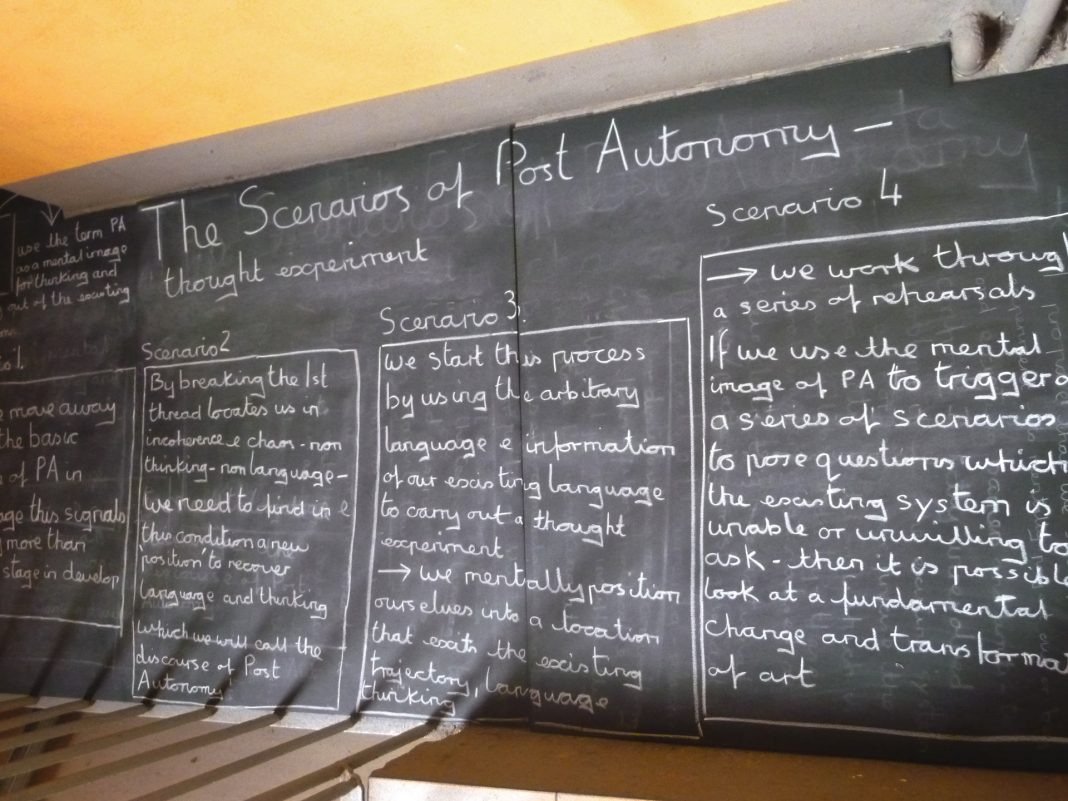 The Scenarios of Post Autonomy —
thought experiment
use the term PA
as a mental image
for thinking and
out of the existing
1.
move away
the basic
of PA in
this signals
more than
stage in develop
Scenario 2
By breaking the 1st
thread locates us in
incoherence e chaos - non
thinking - non language -
we need to find in e
this condition a new
'position' to recover
language and thinking
which we will call the
discourse of Post
Autonomy
Scenario 3.
we start this process
by using the arbitrary
language e information
of our existing language
to carry out a thought
experiment
→ we mentally position
ourselves into a location
that exits the existing
trajectory, language
thinking
Scenario 4
→ we work throug
a series of rehearsals
If we use the mental
image of PA to trigger
a series of scenarios
to pose questions which
the existing system is
unable or unwilling to
ask - then it is possible
look at a fundamental
change and transforma
of art